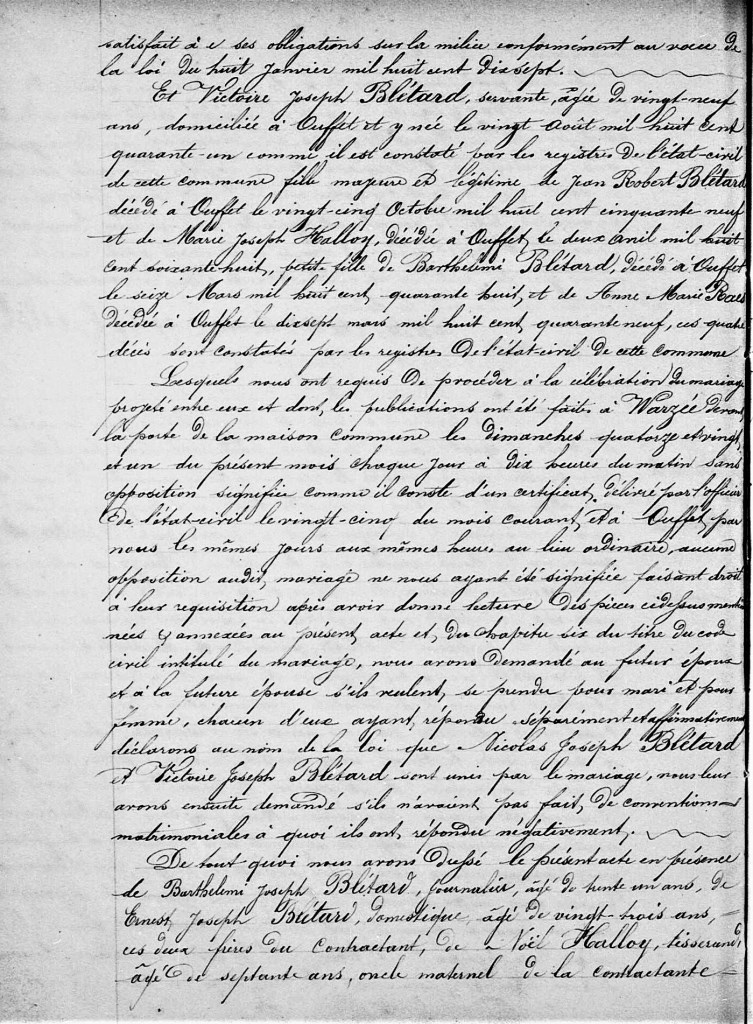 satisfait à ses obligations sur la milice conformément au vœu de
la loi du huit Janvier mil huit cent dix sept.
Et Victoire Joseph Blétard, servante, âgée de vingt-neuf
ans, domiciliée à Ouffet et y née le vingt Août mil huit cent
quarante-un comme il est constaté par les registres de l'état-civil
de cette commune fille majeure et légitime de Jean Robert Blétard
décédé à Ouffet le vingt-cinq Octobre mil huit cent cinquante neuf
et de Marie Joseph Halloy, décédée à Ouffet, le deux avril mil huit
cent soixante huit, petite fille de Barthelemi Blétard, décédé à Ouffet
le seize Mars mil huit cent quarante huit, et de Anne Marie
décédée à Ouffet le dix sept mars mil huit cent quarante neuf, ces quatre
décès sont constatés par les registres de l'état-civil de cette commune
Lesquels nous ont requis de procéder à la célébration du mariage
projeté entre eux et dont les publications ont été faites à Warzée devant
la porte de la maison commune les dimanches quatorze et vingt
et un du présent mois chaque jour à dix heures du matin sans
opposition signifiée comme il conste d'un certificat délivré par l'officier
de l'état-civil le vingt-cinq du mois courant, et à Ouffet, par
nous les mêmes jours aux mêmes heures au lieu ordinaire, aucune
opposition audit mariage ne nous ayant été signifiée faisant droit
à leur requisition après avoir donné lecture des pièces cidessus mention
nées & annexées au présent acte et du chapitre six du titre du code
civil intitulé du mariage, nous avons demandé au futur époux
et à la future épouse s'ils veulent se prendre pour mari et pour
femme, chacun d'eux ayant répondu séparément et affirmativement
déclarons au nom de la loi que Nicolas Joseph Blétard
et Victoire Joseph Blétard sont unis par le mariage, nous leur
avons ensuite demandé s'ils n'avaient pas fait de conventions
matrimoniales à quoi ils ont répondu négativement.
De tout quoi nous avons dressé le présent acte en présence
de Barthelemi Joseph Blétard, journalier, âgé de trente un ans, de
Ernest Joseph Blétard, domestique, âgé de vingt-trois ans,
ces deux frères du contractant, de Noël Halloy, tisserand,
âgé de septante ans, oncle maternel de la contractante